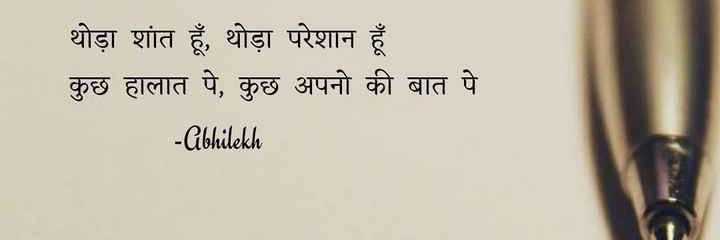 थोड़ा शांत हूँ, थोड़ा परेशान हूँ
कुछ हालात पे, कुछ अपनो की बात पे
-Abhilekh